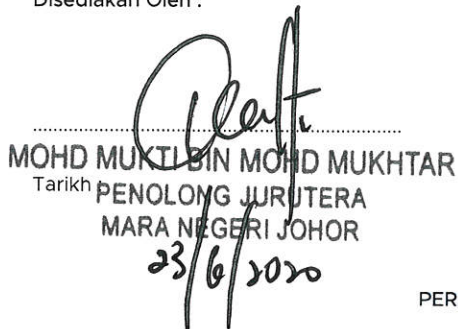 Disediakan Oleh :
MOHD MUKTI BIN MOHD MUKHTAR
Tarikh :
PENOLONG JURUTERA
MARA NEGERI JOHOR
23/6/2020
PER